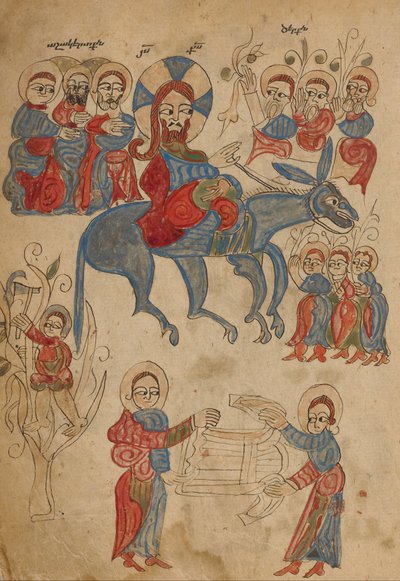 աշակերտքն յս քս ծերքն